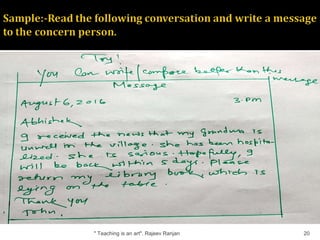 Sample:-Read the following conversation and write a message
to the concern person.
Try!
You Can write/compose better than this
message
Message
August 6, 2016
3.pm
Abhishek
I received the news that my grandma is
unwell in the village. She has been hospita-
lized. She is serious. Hopefully, I
will be back within 5 days. Please
return my library book which is
lying on the table.
Thank you
John.
" Teaching is an art". Rajeev Ranjan
20